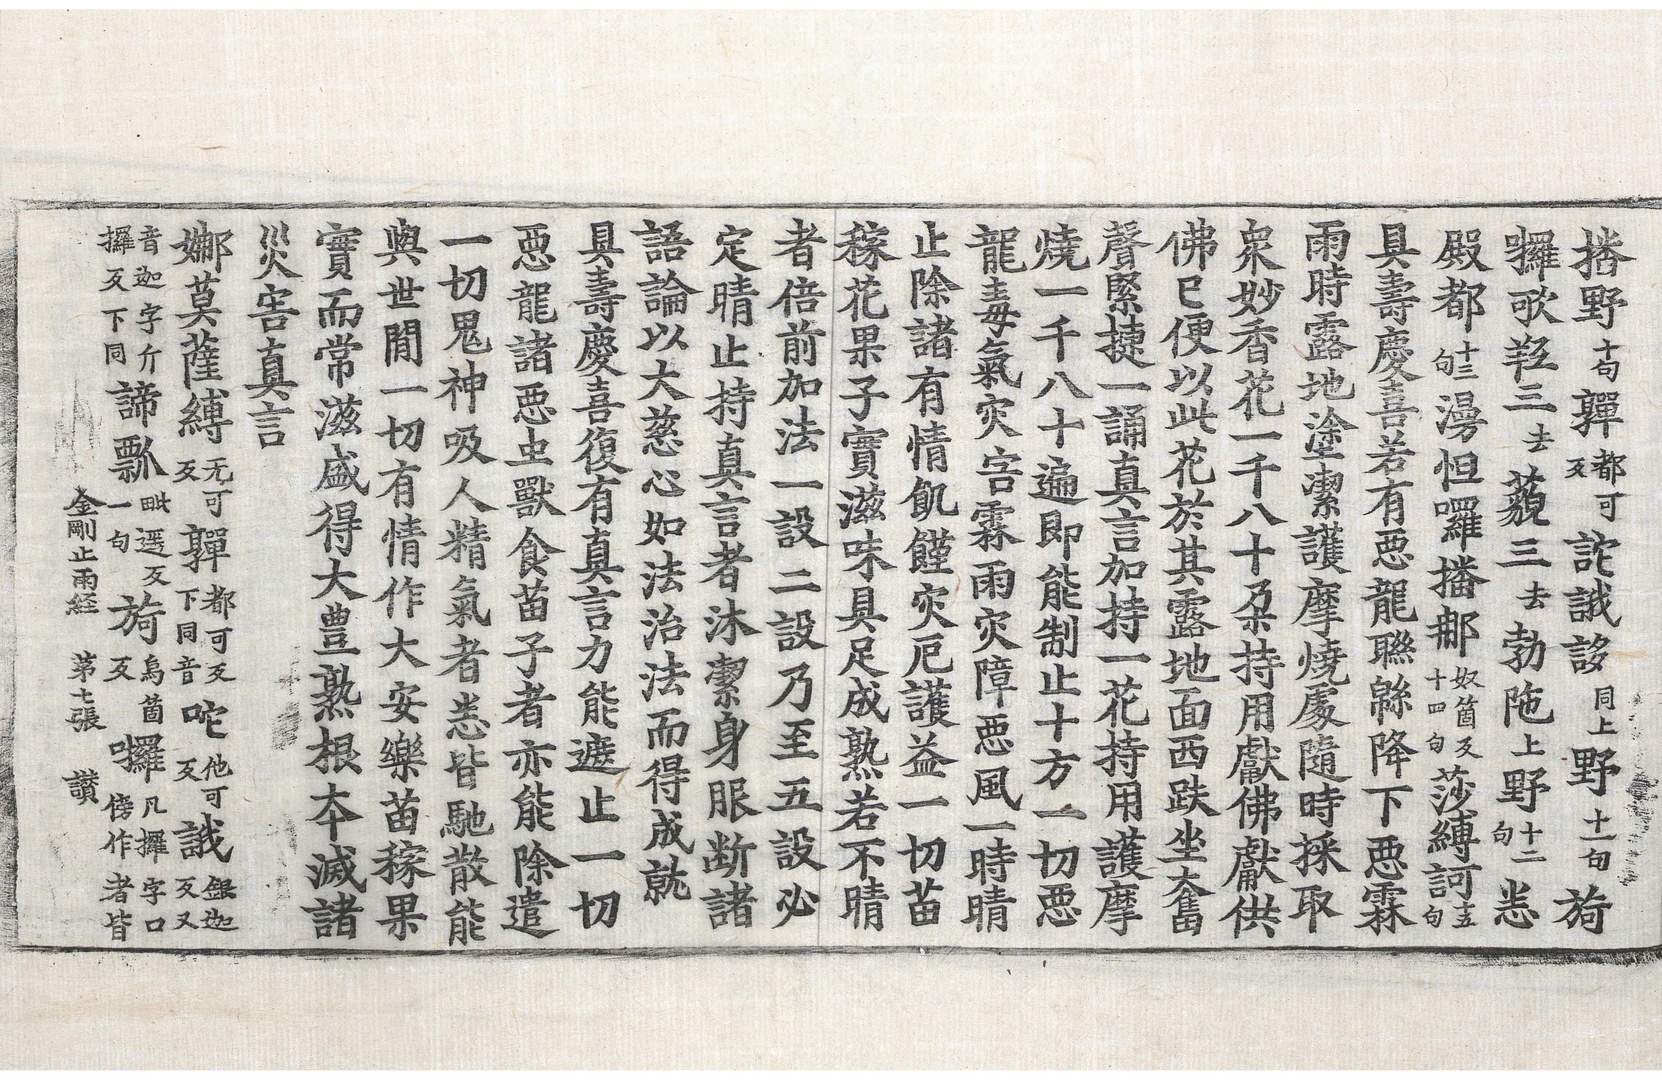 播野十句亸都可反詑誐跢同上野十一句旖
囉歌羟三去藐三去勃陁上野十二句恙
殿都十三句漫怛囉播那奴箇反十四句莎縛訶十五句
具壽慶喜若有惡龍聯緜降下惡霖
雨時露地塗潔護摩燒處隨時採取
衆妙香花一千八十朶持用獻佛獻供
佛已便以此花於其露地面西趺坐奮
聲緊揵一誦真言加持一花持用護摩
燒一千八十遍即能制止十方一切惡
龍毒氣灾害霖雨灾障惡風一時晴
止除諸有情飢饉灾厄護益一切苗
稼花果子實滋味具足成熟若不晴
者倍前加法一設二設乃至五設必
定晴止持真言者沐潔身服断諸
語論以大慈心如法治法而得成就
具壽慶喜復有真言力能遮止一切
惡龍諸惡虫獸食苗子者亦能除遣
一切鬼神吸人精氣者恙皆馳散能
與世間一切有情作大安樂苗稼果
實而常滋盛得大豊熟根本滅諸
災害真言
娜莫薩縛无可反亸都可反下同音咜他可反誐銀迦反又
音迦字斤攞反下同諦瓢毗遥反一句旖烏箇反囉凡攞字口傍作者皆
金剛止雨経 第七張 讃